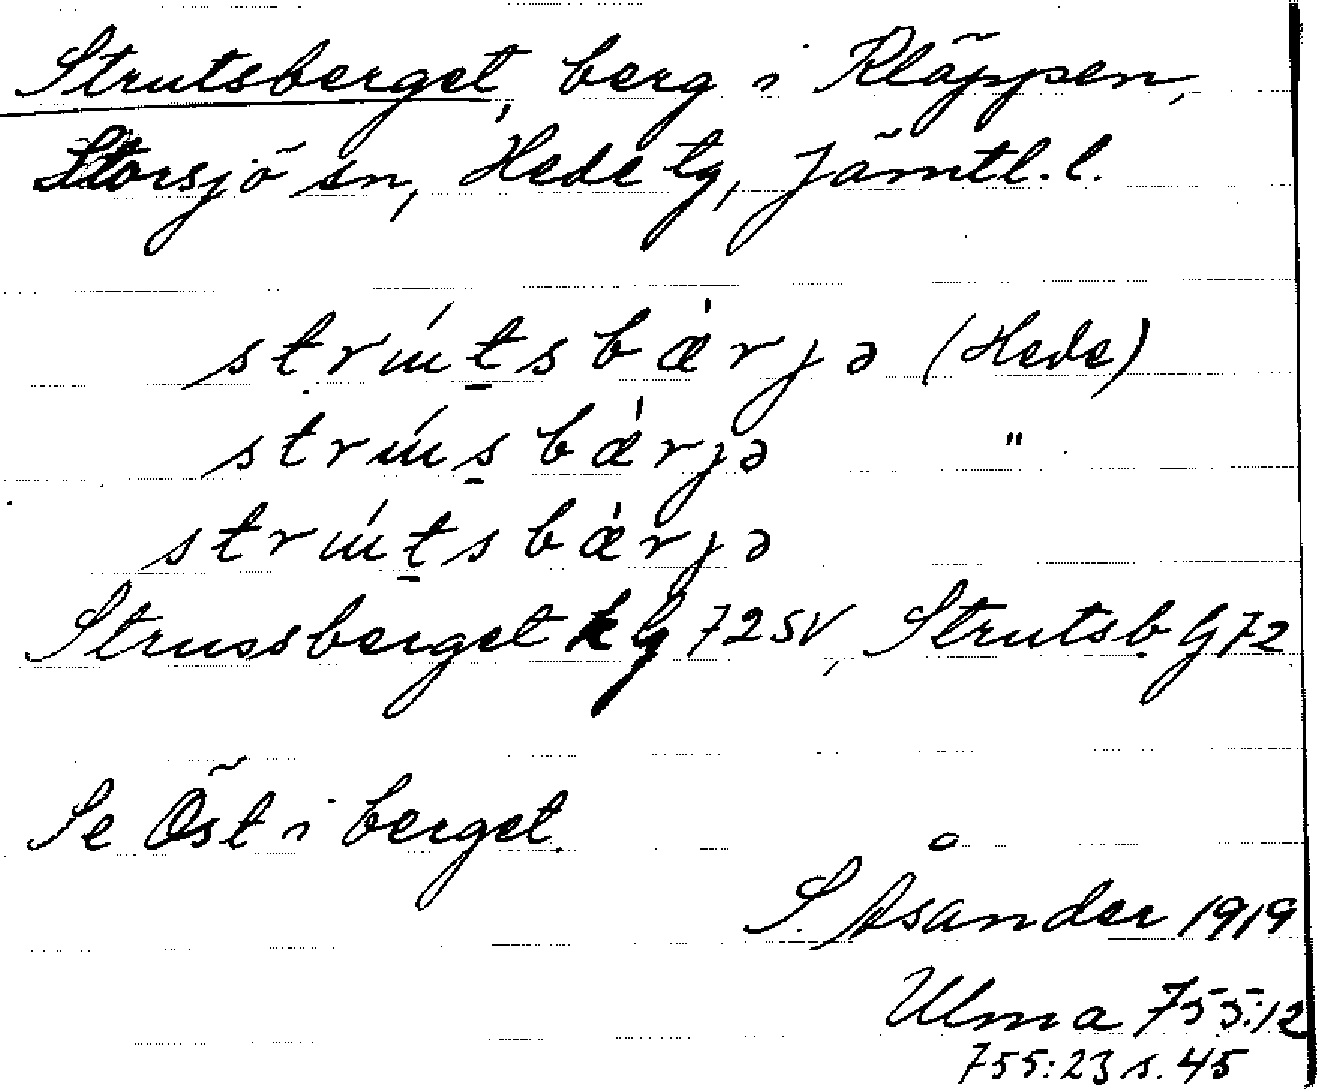 Strutsberget, berg i Kläppen,
Storsjö sn, Hede tg, Jämtl. l.
strú̍tsbæ̀rjə (Hede)
strú̍sbæ̀rjə "
strú̍tsbæ̀rjə
Strussberget k G 72 SV, Strutsb. G 72
Se Öst i berget.
S. Åsander 1919
Ulma 755:12
755:23 s. 45